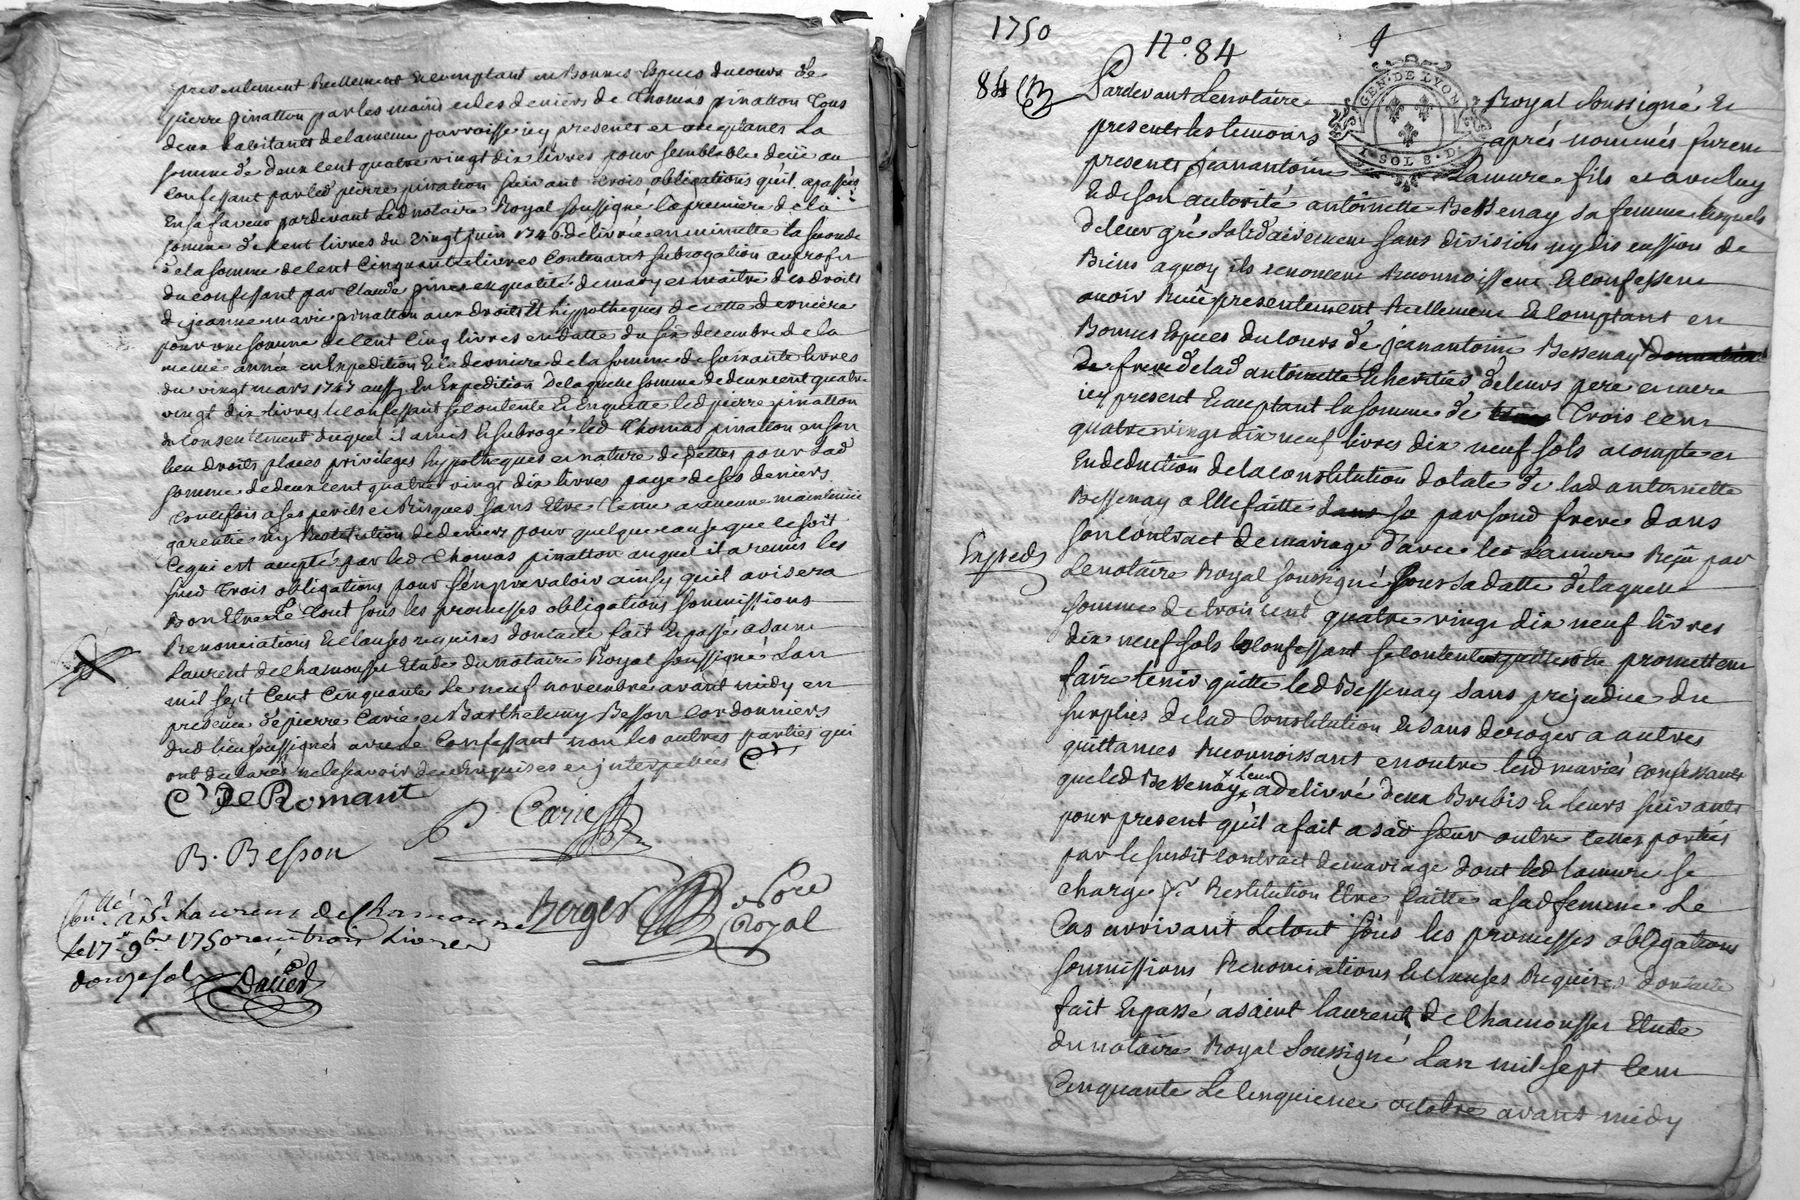 presentement Reellement et comptant en Bonnes Especes du cours de
pierre pinatton par les mains et des deniers de Thomas pinatton Tous
deux habitants de la meme parroisse icy presents et acceptants La
somme de deux cent quatre vingt dix livres pour semblable deüe au
Confessant par led pierre pinatton suivant trois obligations qu'il a passées
En sa faveur pardevant Led notaire Royal soussigné la premiere de la
somme de cent livres du vingt juin 1746 delivrée en minutte la seconde
de la somme de cent Cinquante livres Contenant subrogation au profit
du confessant par Claude pinet en qualité de mary et maitre des droits
de jeanne marie pinatton aux droits et hypotheques de cette derniere
pour une somme de cent Cinq livres en datte du six decembre de la
meme année en Expedition Et la derniere de la somme de soixante livres
du vingt mars 1747 aussy En Expedition De laquelle somme de deux cent quatre
vingt dix livres le Confessant se contente Et En quitte led pierre pinatton
du Consentement duquel il a mis Et subrogé led Thomas pinatton en son
lieu droits places privileges hypotheques et nature de dettes pour lad
somme de deux cent quatre vingt dix livres payé de ses deniers
toutefois a ses perils et Risques sans Etre tenu a aucune maintenue
garentie ny Restitution de deniers pour quelque cause que ce soit
Ce qui est accepté par led Thomas pinatton auquel il a remis les
susd Trois obligations pour s'en prevaloir ainsy qu'il avisera
Bon Etre Le Tout sous les promesses obligations soumissions
Renonciations Et clauses requises dont acte fait Et passé a saint
Laurent de Chamousset Etude du notaire Royal soussigné Lan
mil sept Cent Cinquante Le neuf novembre avant midy en
presence de pierre Carie et Barthelemy Besson Cordonniers
dud lieu soussignés avec Le Confessant non les autres parties qui
ont declaré ne le scavoir de ce Enquises et interpellées
C De Romant
P. Carie
B. Besson
Berger
Nore
Royal
Conllé a St Laurent de Chamousset
Le 17e 9bre 1750 recu trois Livres
douze sols
Daüer
1750
No. 84
84
GEN. DE LYON
SOLS 8. D.
Pardevant Le notaire Royal soussigné Et
presents les temoins aprés nommés furent
presents jean antoine Lamure fils et avec luy
Et de son autorité antoinette Bessenay sa femme lesquels
de leur gré solidairement sans division ny discussion de
Biens a quoy ils renoncent Reconnoissent Et confessent
avoir Reçu presentement Reellement Et Comptant en
Bonnes Especes du cours de jean antoine Bessenay
frere de lad antoinette Et heritier de leurs pere et mere
icy present Et acceptant la somme de Trois cent
quatre vingt dix neuf livres dix neuf sols a compte et
En deduction de la constitution dotale de lad antoinette
Bessenay a Elle faitte par sond frere dans
son Contract de mariage d'avec led Lamure Reçu par
Expedié
Le notaire Royal soussigné sous sa datte de laquelle
somme de trois cent quatre vingt dix neuf livres
dix neuf sols les Confessant se contentent quittent et promettent
faire tenir quitte led Bessenay sans prejudice du
surplus de lad Constitution Et sans deroger a autres
quittances Reconnoissant en outre lesd mariés Confessants
que led Bessenay leur a delivré deux Brebis Et leurs suivants
pour present qu'il a fait a sad sœur outre celles portées
par le susdit Contract de mariage dont led Lamure se
charge pr Restitution Etre faitte a sad femme Le
Cas arrivant Le tout sous les promesses obligations
soumissions Renonciations Et clauses Requises dont acte
fait Et passé a saint laurent de Chamousset Etude
du notaire Royal soussigné Lan mil sept Cent
Cinquante Le Cinquieme octobre avant midy